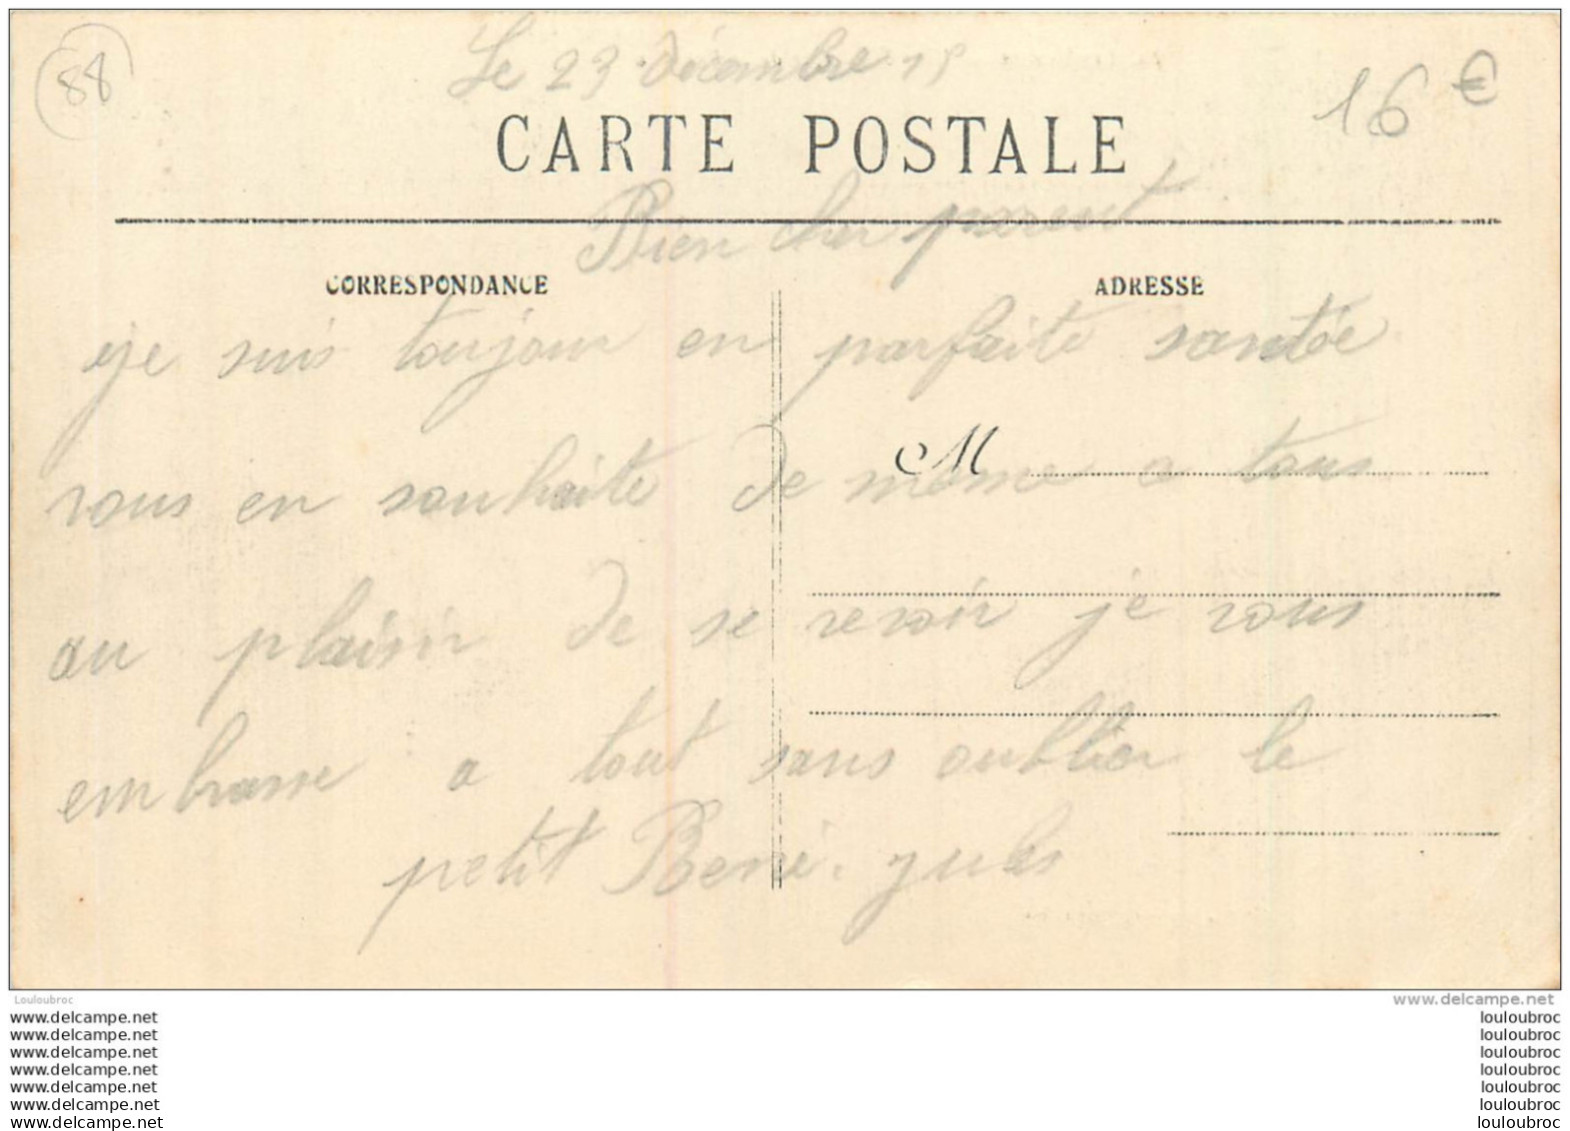 88
Le 23 décembre 15
16 €
CARTE POSTALE
Bien cher parent
CORRESPONDANCE
ADRESSE
je suis toujour en parfaite santée
M
vous en souhaite de même a tous
au plaisir de se revoir je vous
embrasse a tout sans oublier le
petit René. jules
Louloubroc
www.delcampe.net
www.delcampe.net
louloubroc
www.delcampe.net
louloubroc
www.delcampe.net
louloubroc
www.delcampe.net
louloubroc
www.delcampe.net
louloubroc
www.delcampe.net
louloubroc
www.delcampe.net
louloubroc